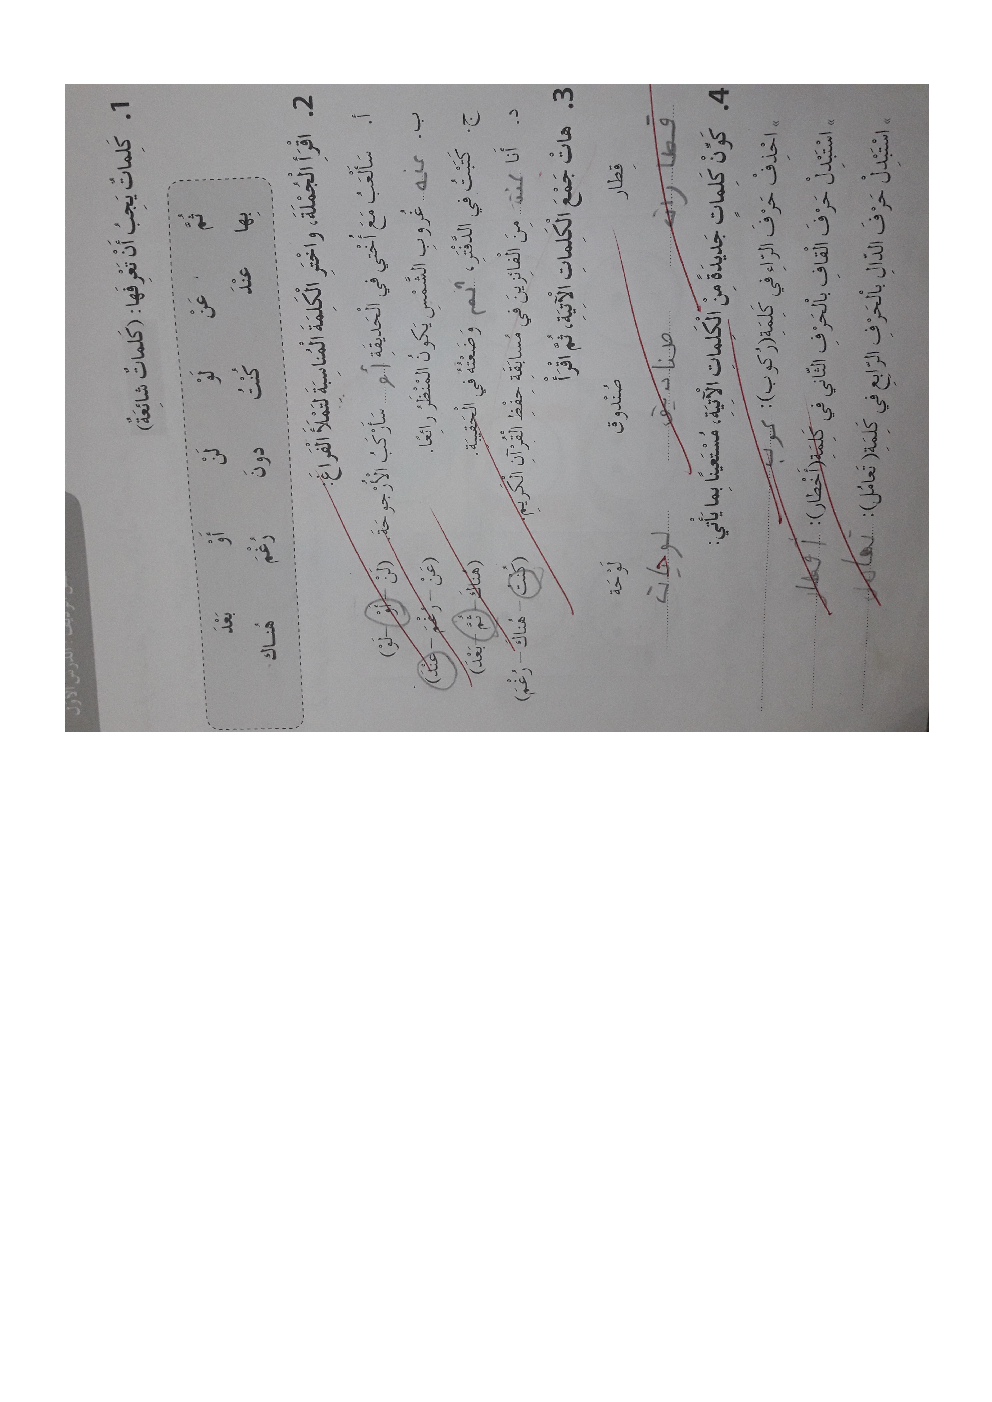 1. كَلِماتٌ يَجِبُ أَنْ تَعْرِفَها: (كَلِماتٌ شائِعَةٌ)
ثُمَّ عَنْ لَوْ لَنْ أَوْ بَعْدَ
بِها عِنْدَ كُنْتُ دونَ رُغْمَ هُناكَ
2. اقْرَأِ الْجُمْلَةَ، واخْتَرِ الْكَلِمَةَ الْمُناسِبَةَ لِتَمْلَأَ الْفَراغَ:
أ. سَأَلْعَبُ مَعَ أُخْتي في الْحَديقَةِ أو سَأَرْكَبُ الْأُرْجوحَةَ. (لَنْ – أَوْ – لَوْ)
ب. عند غُروبِ الشَّمْسِ يَكونُ الْمَنْظَرُ رائِعًا. (عَنْ – رُغْمَ – عِنْدَ)
ج. كَتَبْتُ في الدَّفْتَرِ، ثم وَضَعْتُهُ في الْحَقيبَةِ. (هُناكَ – ثُمَّ – بَعْدَ)
د. أَنا كنت مِنَ الْفائِزينَ في مُسابَقَةِ حِفْظِ الْقُرْآنِ الْكَريمِ. (كُنْتُ – هُناكَ – رُغْمَ)
3. هاتْ جَمْعَ الْكَلِماتِ الْآتِيَةِ، ثُمَّ اقْرَأْ
قِطار صُنْدوق لَوْحَة
قطارات صناديق لوحات
4. كَوِّنْ كَلِماتٍ جَديدَةً مِنْ الْكَلِماتِ الْآتِيَةِ، مُسْتَعينًا بِما يَأْتي:
» احْذِفْ حَرْفَ الرّاءِ في كَلِمَةِ(رُكوب): كوب
» اسْتَبْدِلْ حَرْفَ الْقافِ بِالْحَرْفِ الثّاني في كَلِمَةِ(أَخْطار): أقطار
» اسْتَبْدِلْ حَرْفَ الدّالِ بِالْحَرْفِ الرّابِعِ في كَلِمَةِ( تَعامُل):